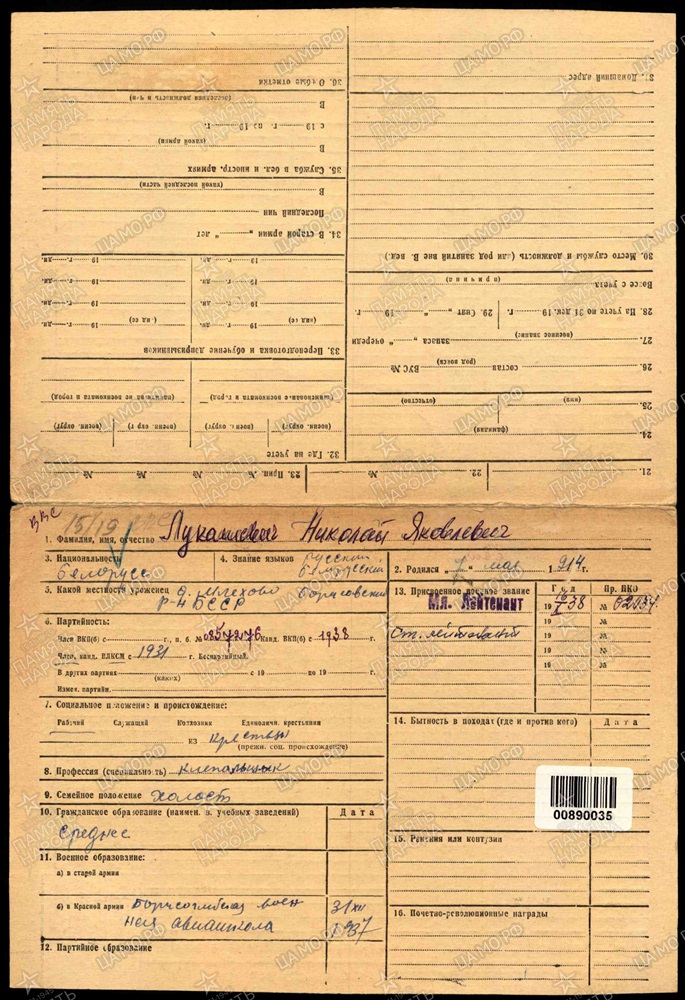 ВВС
15/19
1. Фамилия, имя, отчество Лукашевич Николай Яковлевич
3. Национальность белорусс
4. Знание языков русский белорусский
2. Родился „7“ мая 1914 г.
5. Какой местности уроженец Борисовский
р-н БССР
13. Присвоенное военное звание
Год
Пр. НКО
Мл. Лейтенант 1938 №
Ст. лейтенант 19 №
19 №
19 №
6. Партийность:
Член ВКП(б) с г., п. б. № 0857276 Канд. ВКП(б) с 1938 г.
Член, канд. ВЛКСМ с 1931 г. Беспартийный.
В других партиях с 19 по 19 г.
(каких)
Измен. партийн.
7. Социальное положение и происхождение:
Рабочий Служащий Колхозник Единоличн. крестьянин
из крестьян
(прежн. соц. происхождение)
14. Бытность в походах (где и против кого)
Дата
8. Профессия (специальность) клепальщик
9. Семейное положение холост
10. Гражданское образование (наимен. и. учебных заведений)
Дата
среднее
00890035
11. Военное образование:
а) в старой армии
15. Ранения или контузии
б) в Красной армии Борисоглебская воен
ная авиашкола
31/XII
1937
16. Почетно-революционные награды
12. Партийное образование
21.
22. №
23. Прип. № № № №
24.
(фамилия)
25.
(имя) (отчество)
26. состав ВУС №
(род войск)
27. запаса „ “ очереди
(военное звание)
28. На учете по 31 дек. 19 г. 29. Снят „ “ 19 г.
Вовсе с учета
(причина)
30. Место службы и должность (или род занятий вне В. вед.)
31. Домашний адрес
32. Где на учете
(воен. округ) (воен. округ) (воен. округ) (воен. округ)
33. Переподготовка и обучение допризывников
19 г. дн. 19 г. дн.
19 г. дн. 19 г. дн.
19 г. дн. 19 г. дн.
34. В старой армии „ “ лет
Последний чин
В
(какой последней части)
35. Служба в бел. и иностр. армиях
В
(какой армии)
с 19 г. по 19 г.
В
(последняя должность и чин)
36. Особые отметки
ЦАМО.РФ
ПАМЯТЬ НАРОДА